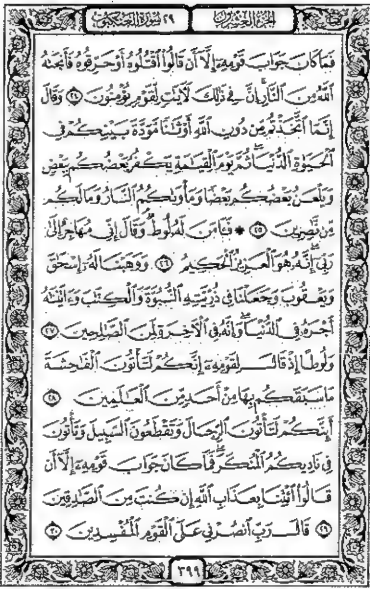 الجزء العشرون ٢٩ سورة العنكبوت
فَمَا كَانَ جَوَابَ قَوْمِهِۦٓ إِلَّآ أَن قَالُوا۟ ٱقْتُلُوهُ أَوْ حَرِّقُوهُ فَأَنجَىٰهُ
ٱللَّهُ مِنَ ٱلنَّارِ ۚ إِنَّ فِى ذَٰلِكَ لَـَٔايَٰتٍ لِّقَوْمٍ يُؤْمِنُونَ ٢٤ وَقَالَ
إِنَّمَا ٱتَّخَذْتُم مِّن دُونِ ٱللَّهِ أَوْثَٰنًا مَّوَدَّةَ بَيْنِكُمْ فِى
ٱلْحَيَوٰةِ ٱلدُّنْيَا ۖ ثُمَّ يَوْمَ ٱلْقِيَٰمَةِ يَكْفُرُ بَعْضُكُم بِبَعْضٍ
وَيَلْعَنُ بَعْضُكُم بَعْضًا وَمَأْوَىٰكُمُ ٱلنَّارُ وَمَا لَكُم
مِّن نَّٰصِرِينَ ٢٥ ۞ فَـَٔامَنَ لَهُۥ لُوطٌ ۘ وَقَالَ إِنِّى مُهَاجِرٌ إِلَىٰ
رَبِّىٓ ۖ إِنَّهُۥ هُوَ ٱلْعَزِيزُ ٱلْحَكِيمُ ٢٦ وَوَهَبْنَا لَهُۥٓ إِسْحَٰقَ
وَيَعْقُوبَ وَجَعَلْنَا فِى ذُرِّيَّتِهِ ٱلنُّبُوَّةَ وَٱلْكِتَٰبَ وَءَاتَيْنَٰهُ
أَجْرَهُۥ فِى ٱلدُّنْيَا ۖ وَإِنَّهُۥ فِى ٱلْـَٔاخِرَةِ لَمِنَ ٱلصَّٰلِحِينَ ٢٧
وَلُوطًا إِذْ قَالَ لِقَوْمِهِۦٓ إِنَّكُمْ لَتَأْتُونَ ٱلْفَٰحِشَةَ
مَا سَبَقَكُم بِهَا مِنْ أَحَدٍ مِّنَ ٱلْعَٰلَمِينَ ٢٨
أَئِنَّكُمْ لَتَأْتُونَ ٱلرِّجَالَ وَتَقْطَعُونَ ٱلسَّبِيلَ وَتَأْتُونَ
فِى نَادِيكُمُ ٱلْمُنكَرَ ۖ فَمَا كَانَ جَوَابَ قَوْمِهِۦٓ إِلَّآ أَن
قَالُوا۟ ٱئْتِنَا بِعَذَابِ ٱللَّهِ إِن كُنتَ مِنَ ٱلصَّٰدِقِينَ
٢٩ قَالَ رَبِّ ٱنصُرْنِى عَلَى ٱلْقَوْمِ ٱلْمُفْسِدِينَ ٣٠
٣٩٩